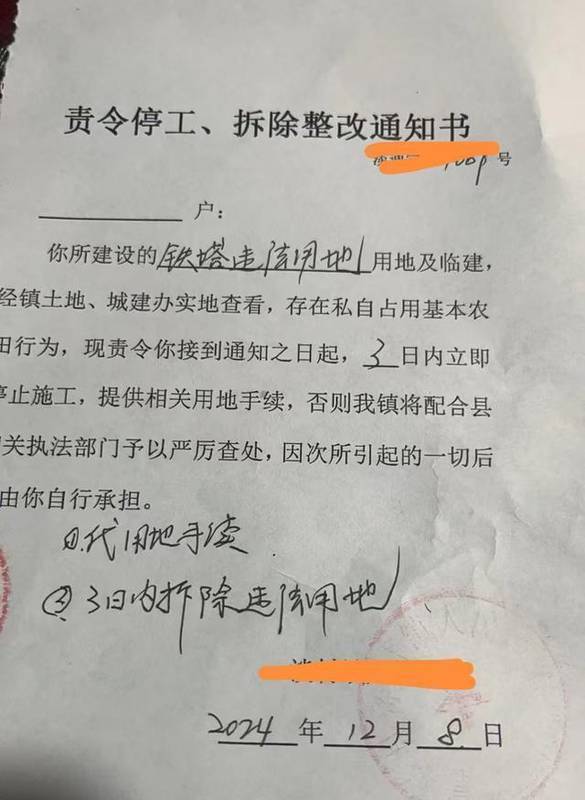 责令停工、拆除整改通知书
号
户：
你所建设的铁塔违法用地用地及临建，
经镇土地、城建办实地查看，存在私自占用基本农
田行为，现责令你接到通知之日起，3日内立即
停止施工，提供相关用地手续，否则我镇将配合县
关执法部门予以严厉查处，因次所引起的一切后
由你自行承担。
①代用地手续
②3日内拆除违法用地
2024年12月8日